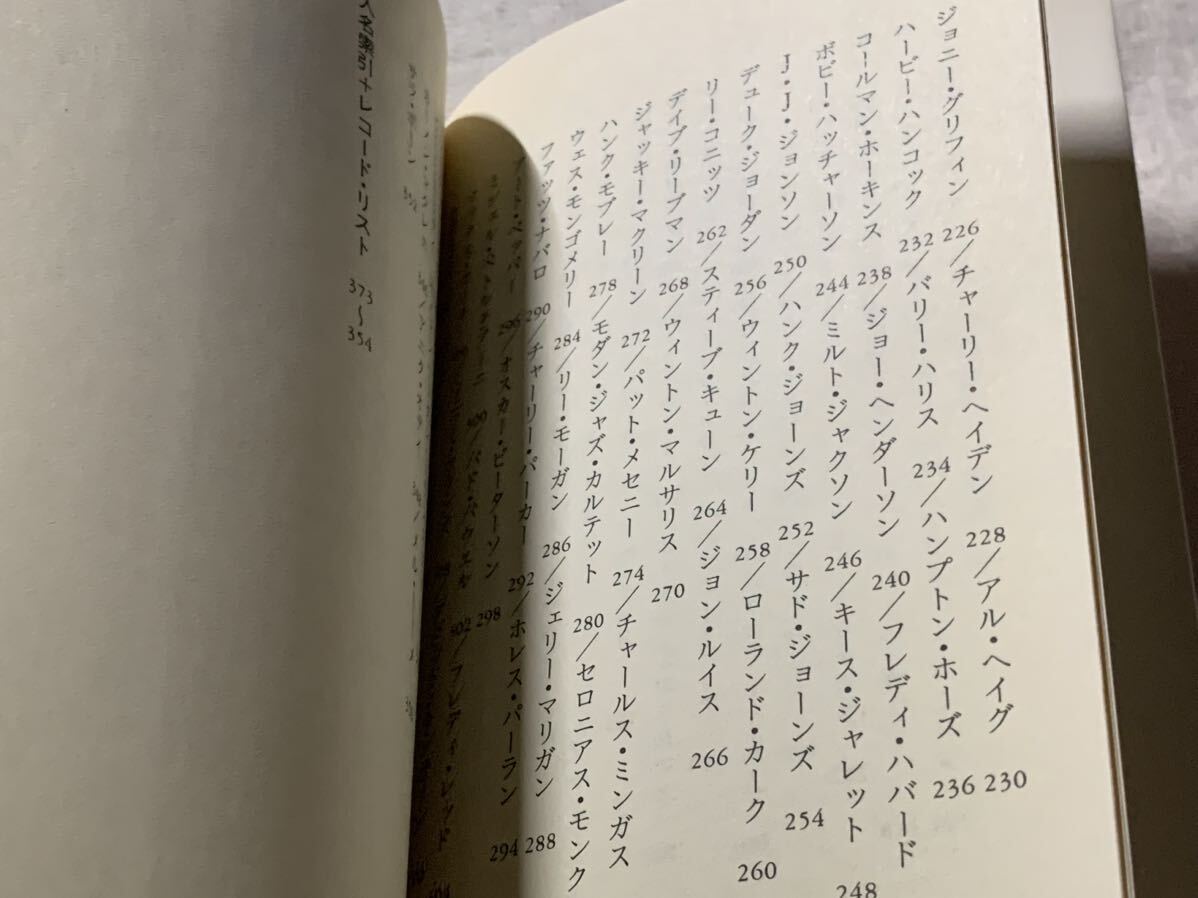 ジョニー・グリフィン 226/チャーリー・ヘイデン 228/アル・ヘイグ 230
ハービー・ハンコック 232/バリー・ハリス 234/ハンプトン・ホーズ 236
コールマン・ホーキンス 238/ジョー・ヘンダーソン 240/フレディ・ハバード
ボビー・ハッチャーソン 244/ミルト・ジャクソン 246/キース・ジャレット 248
J・J・ジョンソン 250/ハンク・ジョーンズ 252/サド・ジョーンズ 254
デューク・ジョーダン 256/ウィントン・ケリー 258/ローランド・カーク 260
リー・コニッツ 262/スティーブ・キューン 264/ジョン・ルイス 266
デイブ・リーブマン 268/ウィントン・マルサリス 270
ジャッキー・マクリーン 272/パット・メセニー 274/チャールス・ミンガス
ハンク・モブレー 278/モダン・ジャズ・カルテット 280/セロニアス・モンク
ウェス・モンゴメリー 284/リー・モーガン 286/ジェリー・マリガン 288
ファッツ・ナバロ 290/チャーリー・パーカー 292/ホレス・パーラン 294
アート・ペッパー 296/オスカー・ピーターソン 298
/バド・パウエル 302/フレディ・レッド
人名索引+レコード・リスト 373〜354